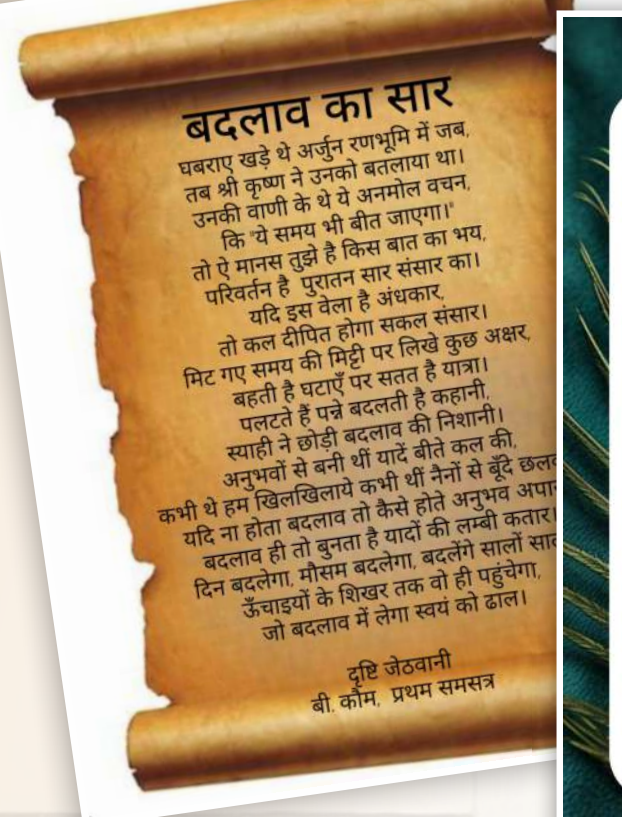 बदलाव का सार
घबराए खड़े थे अर्जुन रणभूमि में जब,
तब श्री कृष्ण ने उनको बतलाया था।
उनकी वाणी के थे ये अनमोल वचन,
कि "ये समय भी बीत जाएगा।"
तो ऐ मानस तुझे है किस बात का भय,
परिवर्तन है पुरातन सार संसार का।
यदि इस वेला है अंधकार,
तो कल दीपित होगा सकल संसार।
मिट गए समय की मिट्टी पर लिखे कुछ अक्षर,
बहती है घटाएँ पर सतत है यात्रा।
पलटते हैं पन्ने बदलती है कहानी,
स्याही ने छोड़ी बदलाव की निशानी।
अनुभवों से बनी थीं यादें बीते कल की,
कभी थे हम खिलखिलाये कभी थीं नैनों से बूँदे
यदि ना होता बदलाव तो कैसे होते अनुभव
बदलाव ही तो बुनता है यादों की लम्बी कतार।
दिन बदलेगा, मौसम बदलेगा, बदलेंगे सालों
ऊँचाइयों के शिखर तक वो ही पहुंचेगा,
जो बदलाव में लेगा स्वयं को ढाल।
दृष्टि जेठवानी
बी. कौम, प्रथम समसत्र